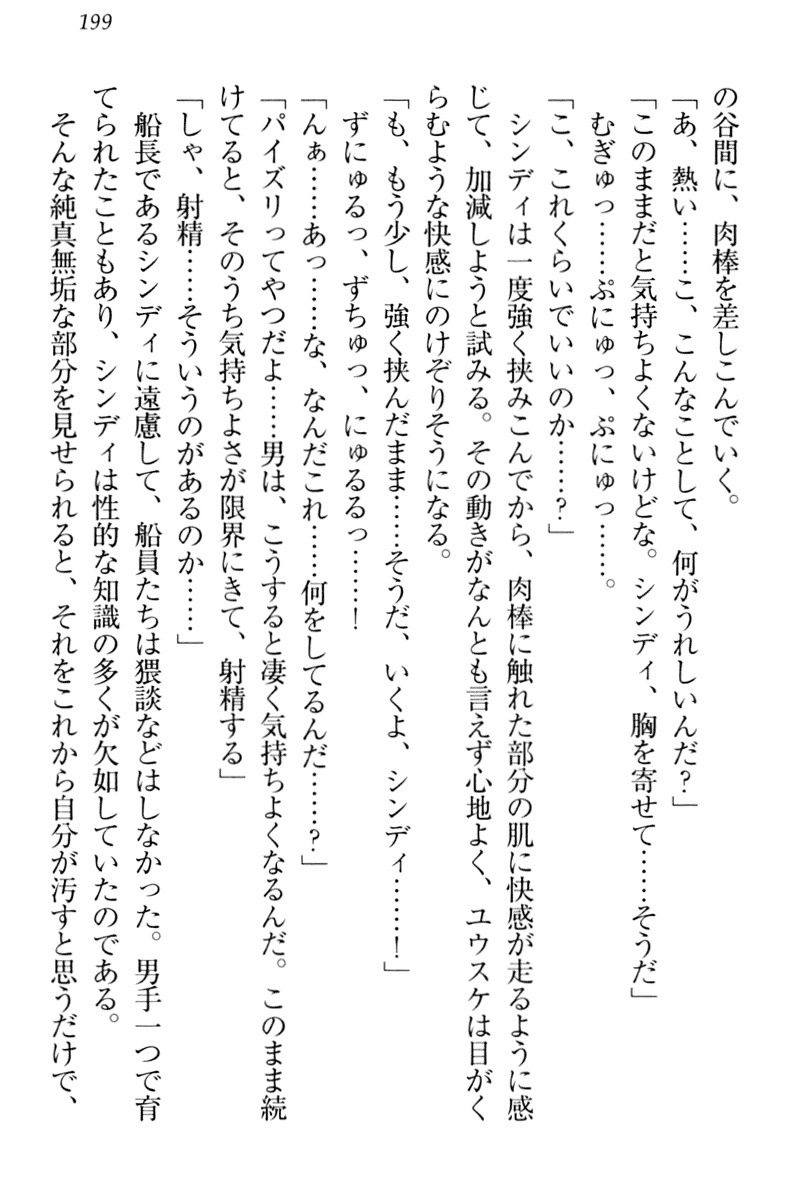 199
の谷間に、肉棒を差しこんでいく。
「あ、熱い……こ、こんなことして、何がうれしいんだ？」
「このままだと気持ちよくないけどな。シンディ、胸を寄せて……そうだ」
むぎゅっ……ぷにゅっ、ぷにゅっ……。
「こ、これくらいでいいのか……？」
シンディは一度強く挟みこんでから、肉棒に触れた部分の肌に快感が走るように感
じて、加減しようと試みる。その動きがなんとも言えず心地よく、ユウスケは目がく
らむような快感にのけぞりそうになる。
「も、もう少し、強く挟んだまま……そうだ、いくよ、シンディ……！」
ずにゅるっ、ずちゅっ、にゅるるっ……！
「んぁ……あっ……な、なんだこれ……何をしてるんだ……？」
「パイズリってやつだよ……男は、こうすると凄く気持ちよくなるんだ。このまま続
けてると、そのうち気持ちよさが限界にきて、射精する」
「しゃ、射精……そういうのがあるのか……」
船長であるシンディに遠慮して、船員たちは猥談などはしなかった。男手一つで育
てられたこともあり、シンディは性的な知識の多くが欠如していたのである。
そんな純真無垢な部分を見せられると、それをこれから自分が汚すと思うだけで、